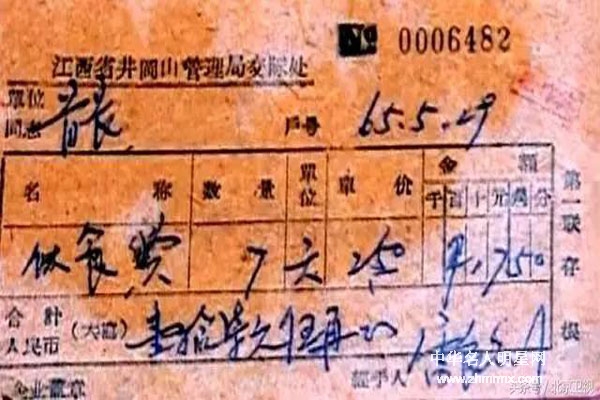 № 0006482
江西省井岡山管理局交际处
單位 首長
同志 戶号 65.5.29
名称 数量 單位 單价 金額
千百十元角分
伙食费 7 天 250 1750
合計 (大寫) 壹拾柒元伍角
人民币 經手人
企业蓋章
第一联存根
中华名人明星网
www.zhmrmx.com
头条号/北京卫视